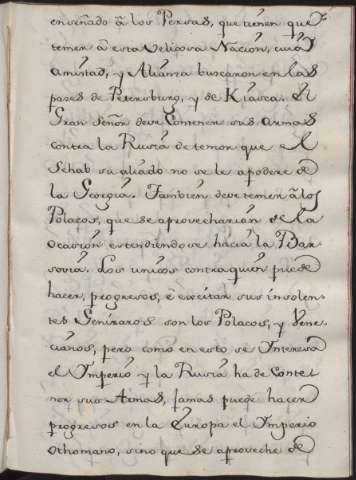 enseñado â los Persas, que tienen que
temer â esta Velicosa Nacion, cuiâ
Amistad, y Alianza buscaron en las
pases de Petersburg, y de Kiasca. El
Gran Señor deve Contener sus Armas
contra la Rusia de temor que el
Schab su aliado no se le apodere de
la Georgia. Tambien deve temer â los
Polacos, que se aprovecharian de la
Ocasion estendiendose hacia la Bar-
sovia. Los unicos contra quien puede
hacer, progresos, ê excitar sus insolen-
tes Geniraros son los Polacos, y Vene-
cianos, pero como en esto se Interesa
el Imperio y la Rusia ha de Conte-
ner sus Armas, jamas puede hacer
progresos en la Europa el Imperio
Othomano, sino que se aproveche de